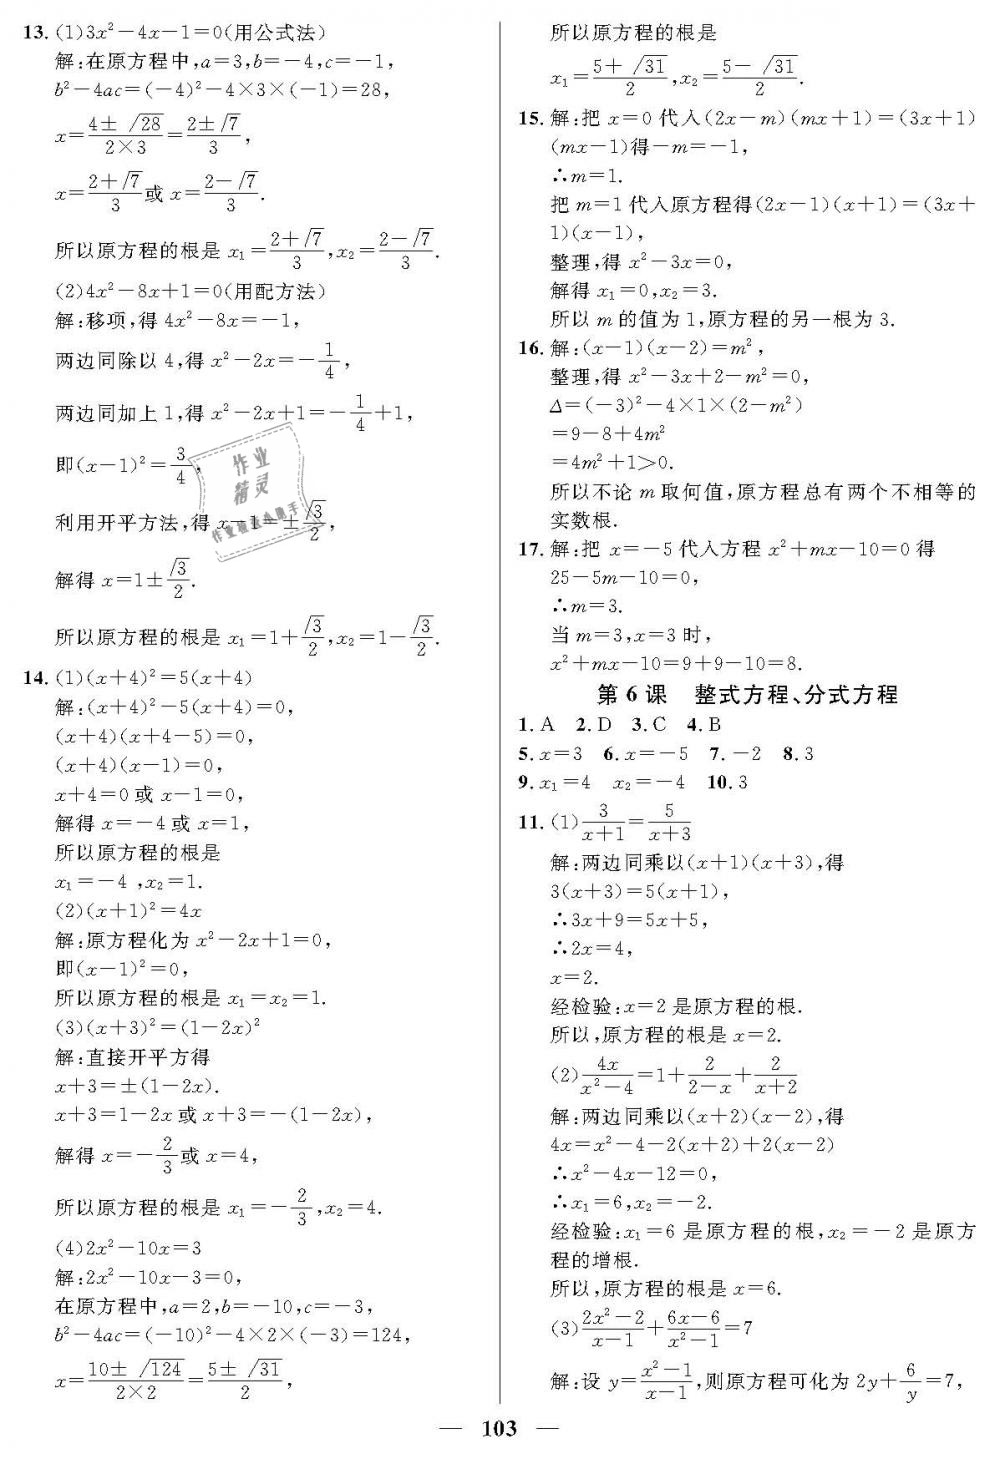 13. (1)3x²－4x－1＝0(用公式法)
解:在原方程中,a＝3,b＝－4,c＝－1,
b²－4ac＝(－4)²－4×3×(－1)＝28,
x＝(4±√28)/(2×3)＝(2±√7)/3,
x＝(2＋√7)/3 或 x＝(2－√7)/3.
所以原方程的根是 x₁＝(2＋√7)/3,x₂＝(2－√7)/3.
(2)4x²－8x＋1＝0(用配方法)
解:移项,得 4x²－8x＝－1,
两边同除以 4,得 x²－2x＝－1/4,
两边同加上 1,得 x²－2x＋1＝－1/4＋1,
即(x－1)²＝3/4,
利用开平方法,得 x－1＝±√3/2,
解得 x＝1±√3/2.
所以原方程的根是 x₁＝1＋√3/2,x₂＝1－√3/2.
作业
精灵
14. (1)(x＋4)²＝5(x＋4)
解:(x＋4)²－5(x＋4)＝0,
(x＋4)(x＋4－5)＝0,
(x＋4)(x－1)＝0,
x＋4＝0 或 x－1＝0,
解得 x＝－4 或 x＝1,
所以原方程的根是
x₁＝－4 ,x₂＝1.
(2)(x＋1)²＝4x
解:原方程化为 x²－2x＋1＝0,
即(x－1)²＝0,
所以原方程的根是 x₁＝x₂＝1.
(3)(x＋3)²＝(1－2x)²
解:直接开平方得
x＋3＝±(1－2x).
x＋3＝1－2x 或 x＋3＝－(1－2x),
解得 x＝－2/3 或 x＝4,
所以原方程的根是 x₁＝－2/3,x₂＝4.
(4)2x²－10x＝3
解:2x²－10x－3＝0,
在原方程中,a＝2,b＝－10,c＝－3,
b²－4ac＝(－10)²－4×2×(－3)＝124,
x＝(10±√124)/(2×2)＝(5±√31)/2,
所以原方程的根是
x₁＝(5＋√31)/2,x₂＝(5－√31)/2.
15. 解:把 x＝0 代入(2x－m)(mx＋1)＝(3x＋1)
(mx－1)得－m＝－1,
∴m＝1.
把 m＝1 代入原方程得(2x－1)(x＋1)＝(3x＋
1)(x－1),
整理,得 x²－3x＝0,
解得 x₁＝0,x₂＝3.
所以 m 的值为 1,原方程的另一根为 3.
16. 解:(x－1)(x－2)＝m²,
整理,得 x²－3x＋2－m²＝0,
Δ＝(－3)²－4×1×(2－m²)
＝9－8＋4m²
＝4m²＋1>0.
所以不论 m 取何值,原方程总有两个不相等的
实数根.
17. 解:把 x＝－5 代入方程 x²＋mx－10＝0 得
25－5m－10＝0,
∴m＝3.
当 m＝3,x＝3 时,
x²＋mx－10＝9＋9－10＝8.
第 6 课 整式方程、分式方程
1. A 2. D 3. C 4. B
5. x＝3 6. x＝－5 7. －2 8. 3
9. x₁＝4 x₂＝－4 10. 3
11. (1)3/(x＋1)＝5/(x＋3)
解:两边同乘以(x＋1)(x＋3),得
3(x＋3)＝5(x＋1),
∴3x＋9＝5x＋5,
∴2x＝4,
x＝2.
经检验:x＝2 是原方程的根.
所以,原方程的根是 x＝2.
(2)4x/(x²－4)＝1＋2/(2－x)＋2/(x＋2)
解:两边同乘以(x＋2)(x－2),得
4x＝x²－4－2(x＋2)＋2(x－2)
∴x²－4x－12＝0,
∴x₁＝6,x₂＝－2.
经检验:x₁＝6 是原方程的根,x₂＝－2 是原方
程的增根.
所以,原方程的根是 x＝6.
(3)(2x²－2)/(x－1)＋(6x－6)/(x²－1)＝7
解:设 y＝(x²－1)/(x－1),则原方程可化为 2y＋6/y＝7,
— 103 —